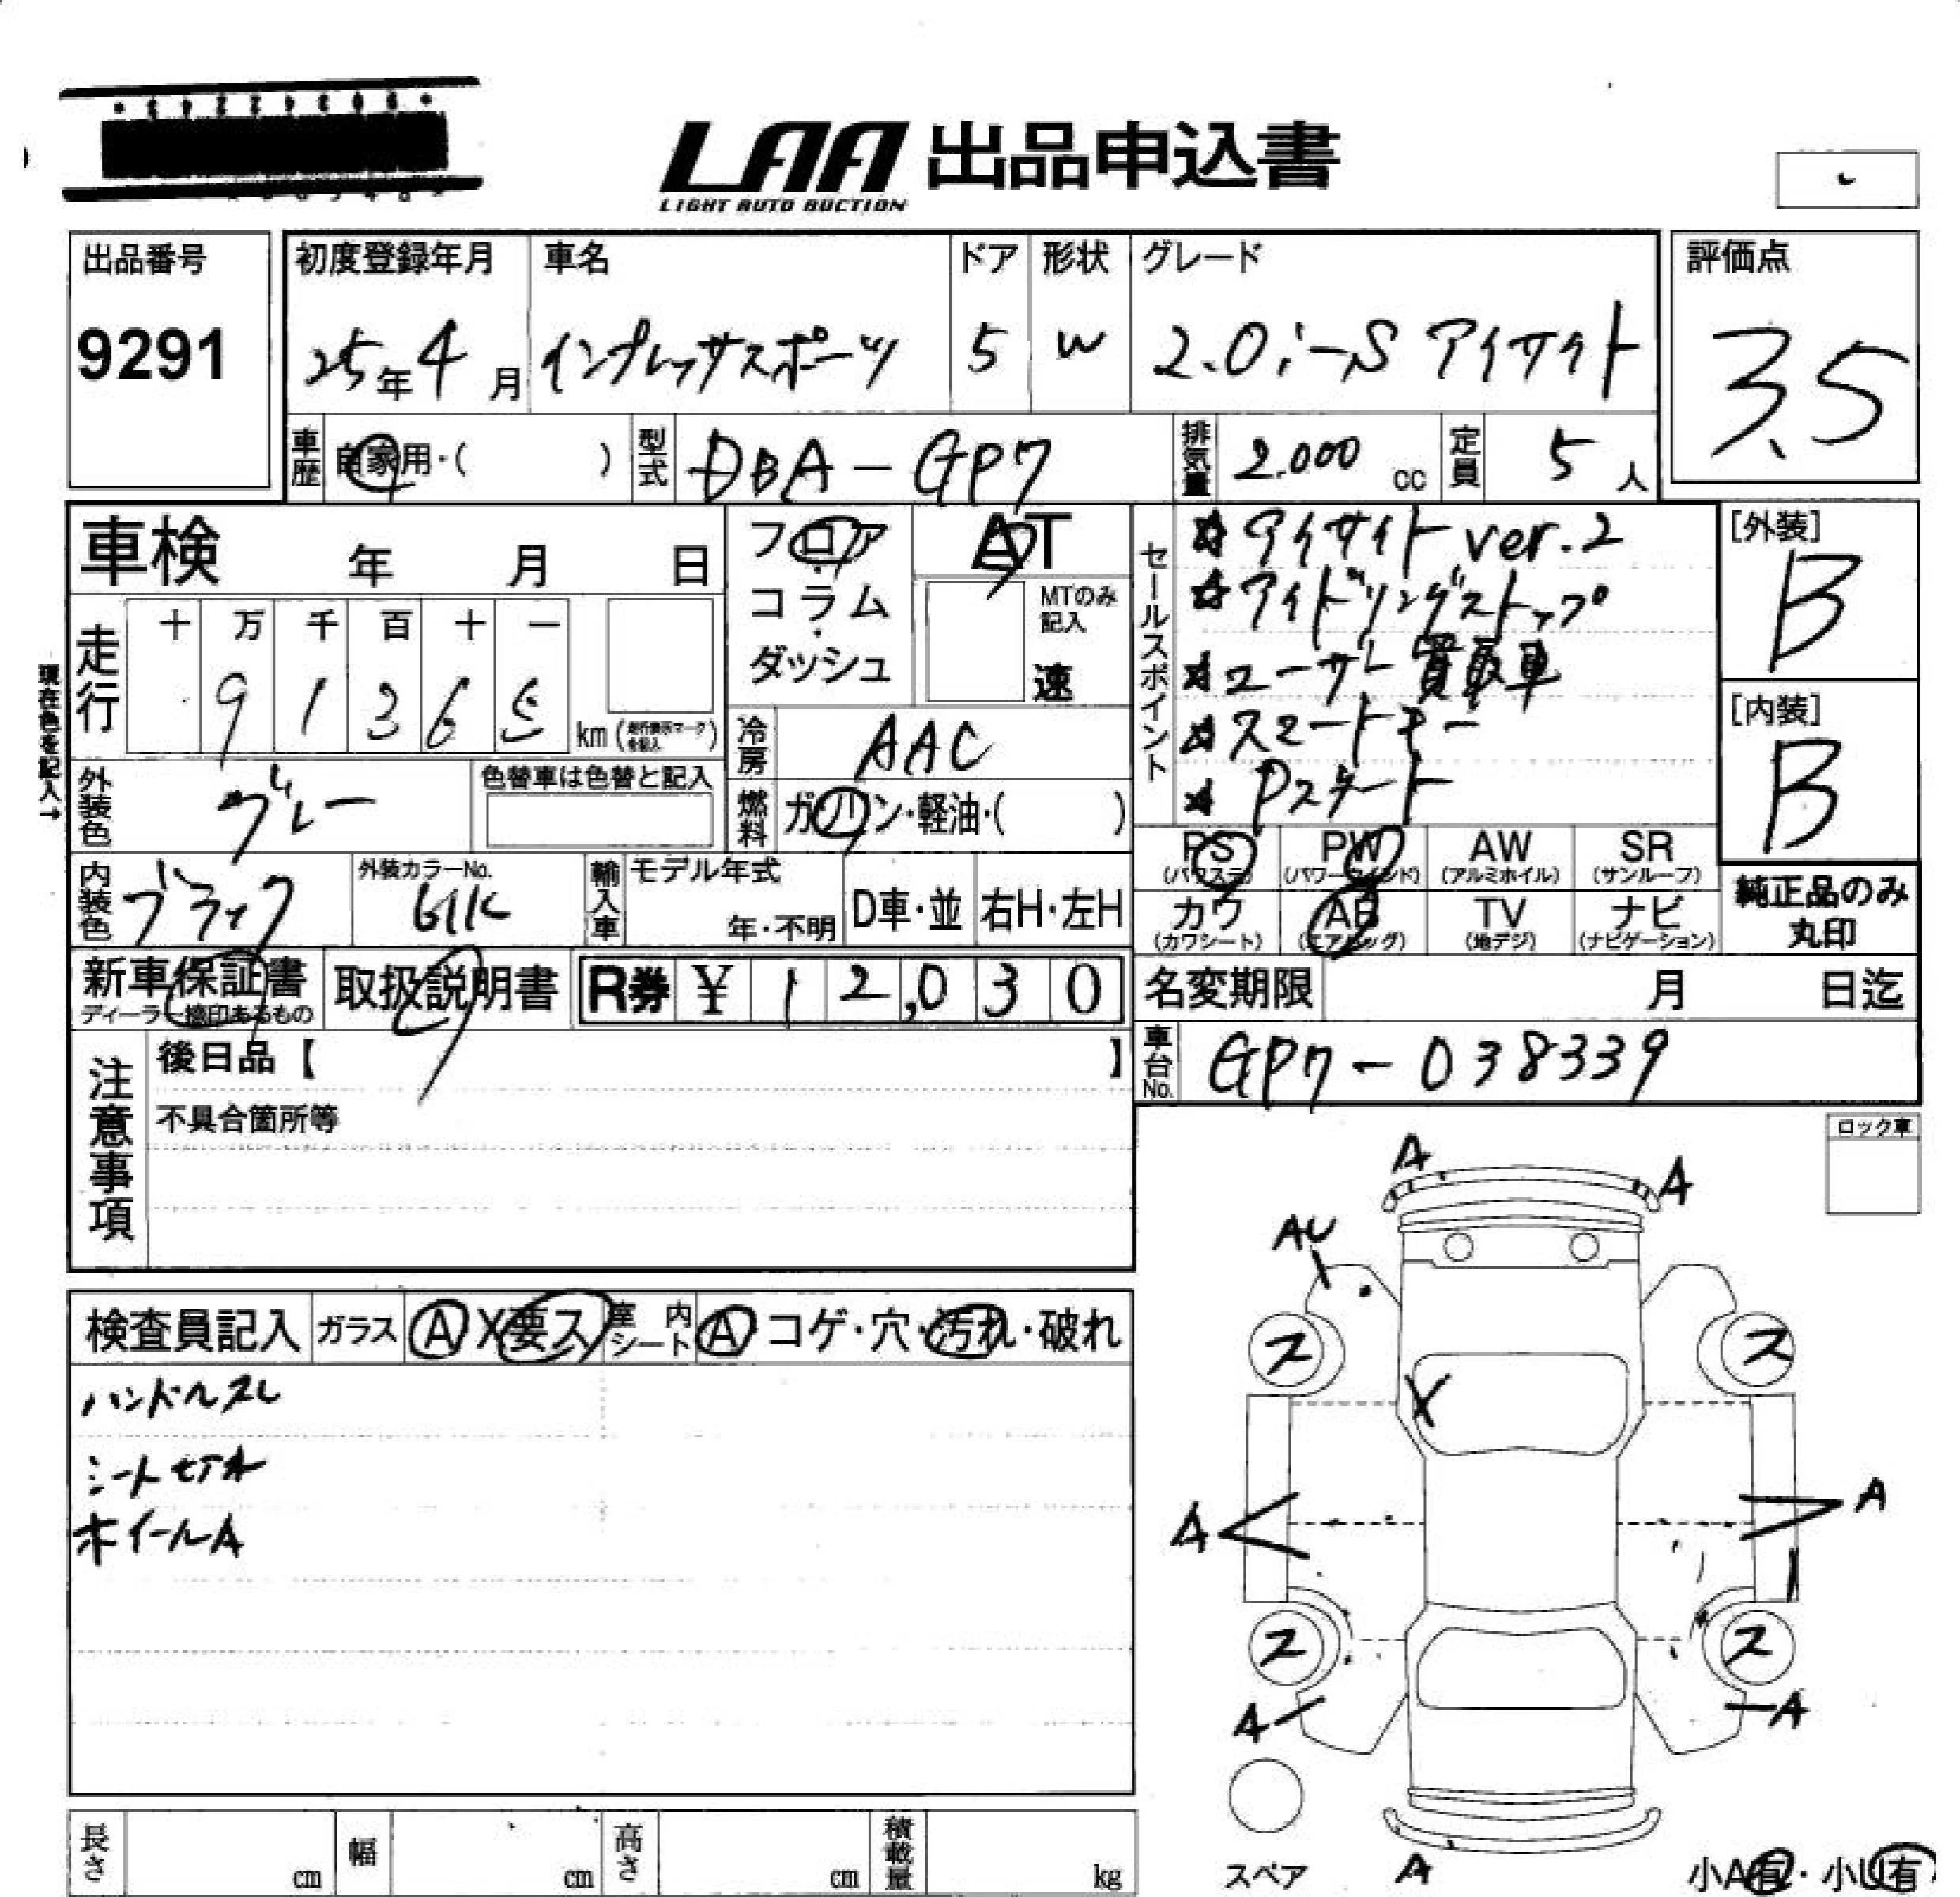 LAA 出品申込書
LIGHT AUTO AUCTION
出品番号
9291
初度登録年月 車名 ドア 形状 グレード
25年4月 インプレッサスポーツ 5 W 2.0i-S アイサイト
評価点
3.5
車歴 自家用・( ) 型式 DBA-GP7 排気量 2.000 cc 定員 5 人
車検 年 月 日
フロア
コラム
ダッシュ
AT
MTのみ記入
速
セールスポイント
☆アイサイト ver.2
☆アイドリングストップ
☆ユーザー買取車
☆スマートキー
☆Pスタート
[外装]
B
[内装]
B
現在色を記入→
走行 十 万 千 百 十 一
9 1 3 6 5 km
冷房 AAC
外装色 グレー 色替車は色替と記入
燃料 ガソリン・軽油・( )
PS PW AW SR
(パワステ) (パワーウインド) (アルミホイル) (サンルーフ)
カワ AB TV ナビ
(カワシート) (エアバッグ) (地デジ) (ナビゲーション)
純正品のみ
丸印
内装色 ブラック 外装カラーNo. 61K 輸入車 モデル年式 年・不明 D車・並 右H・左H
新車保証書 取扱説明書 R券 ¥ 12,030
ディーラー捺印あるもの
名変期限 月 日迄
車台No. GP7-038339
注意事項
後日品【 】
不具合箇所等
ロック車
検査員記入 ガラス A X 要ス 室内シート A コゲ・穴・汚れ・破れ
ハンドルスレ
シートセイA
ホイールA
A
A
AU
ス ス
X
A A
ス ス
A A
A
スペア
小A有・小U有
長さ cm 幅 cm 高さ cm 積載量 kg